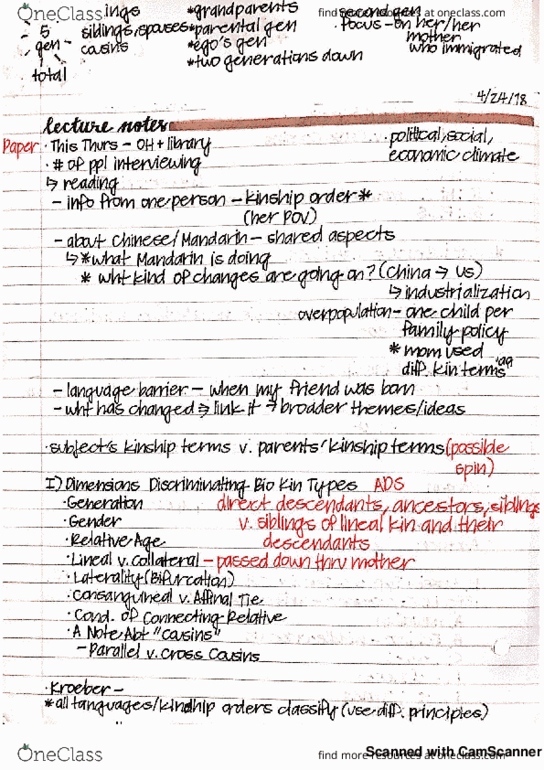 OneClass
find more resources at oneclass.com
ings *grandparents second gen
- 5 siblings, spouses *parental gen focus - on her/her
gen - cousins *ego's gen mother
*two generations down who immigrated
total
4/24/18
lecture notes
Paper · This Thurs - OH + library · political, social,
· # of ppl interviewing economic climate
↳ reading
- info from one person - kinship order *
(her POV)
- about Chinese/Mandarin - shared aspects
↳ * what Mandarin is doing
* wht kind of changes are going on? (China → US)
↳ industrialization
overpopulation - one child per
family policy
* mom used
diff. kin terms
- language barrier - when my friend was born
- wht has changed → link it → brodder themes/ideas
· subject's kinship terms v. parents' kinship terms (possible
spin)
I) Dimensions Discriminating Bio Kin Types ADS
· Generation direct descendants, ancestors, siblings
· Gender v. siblings of lineal kin and their
· Relative Age descendants
· Lineal v. Collateral - passed down thru mother
· Laterality (Bifurcation)
· Consanguineal v. Affinal Tie
· Cond. of Connecting Relative
· A Note Abt "Cousins"
- Parallel v. Cross Cousins
· Kroeber -
* all languages/kindhip orders classify (use diff. principles)
OneClass
find more resources at oneclass.com
Scanned with CamScanner